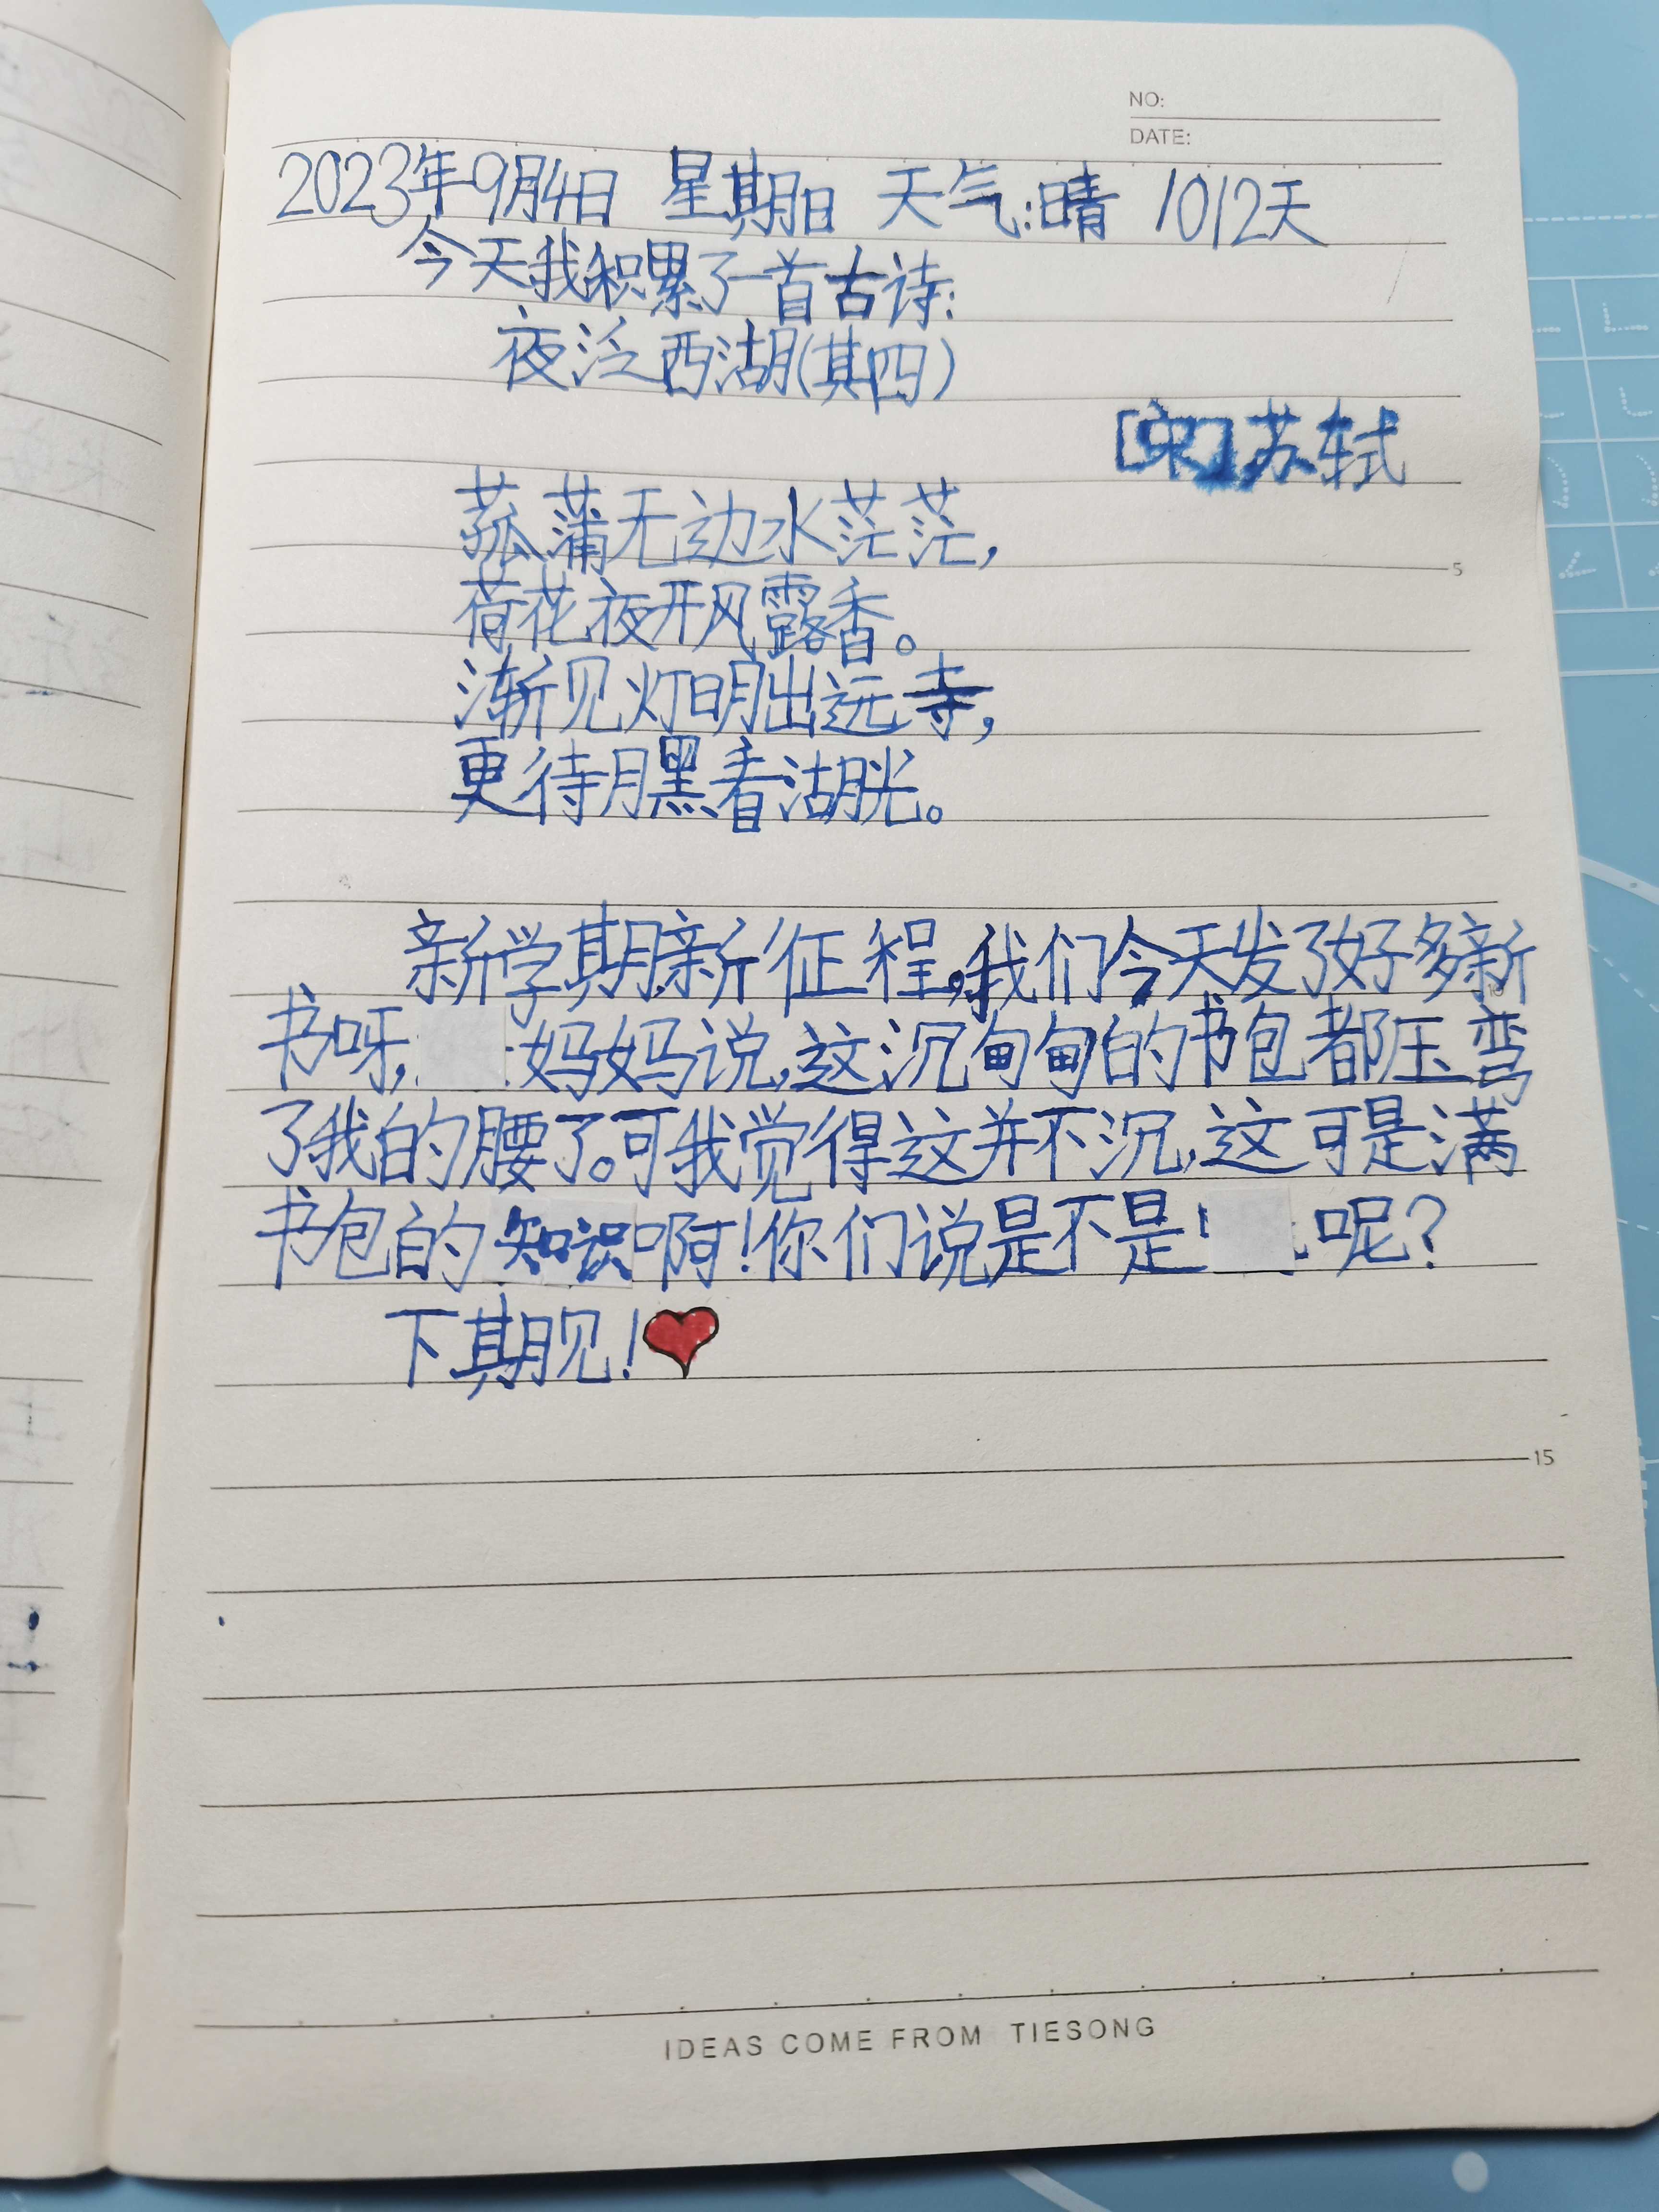 NO:
DATE:
2023年9月4日 星期日 天气:晴 1012天
今天我积累了一首古诗:
夜泛西湖(其四)
[宋]苏轼
菰蒲无边水茫茫,
5
荷花夜开风露香。
渐见灯明出远寺,
更待月黑看湖光。
新学期,新征程,我们今天发了好多新
书呀,妈妈说,这沉甸甸的书包都压弯
了我的腰了。可我觉得这并不沉,这可是满
书包的知识啊!你们说是不是呢?
下期见!
15
IDEAS COME FROM TIESONG